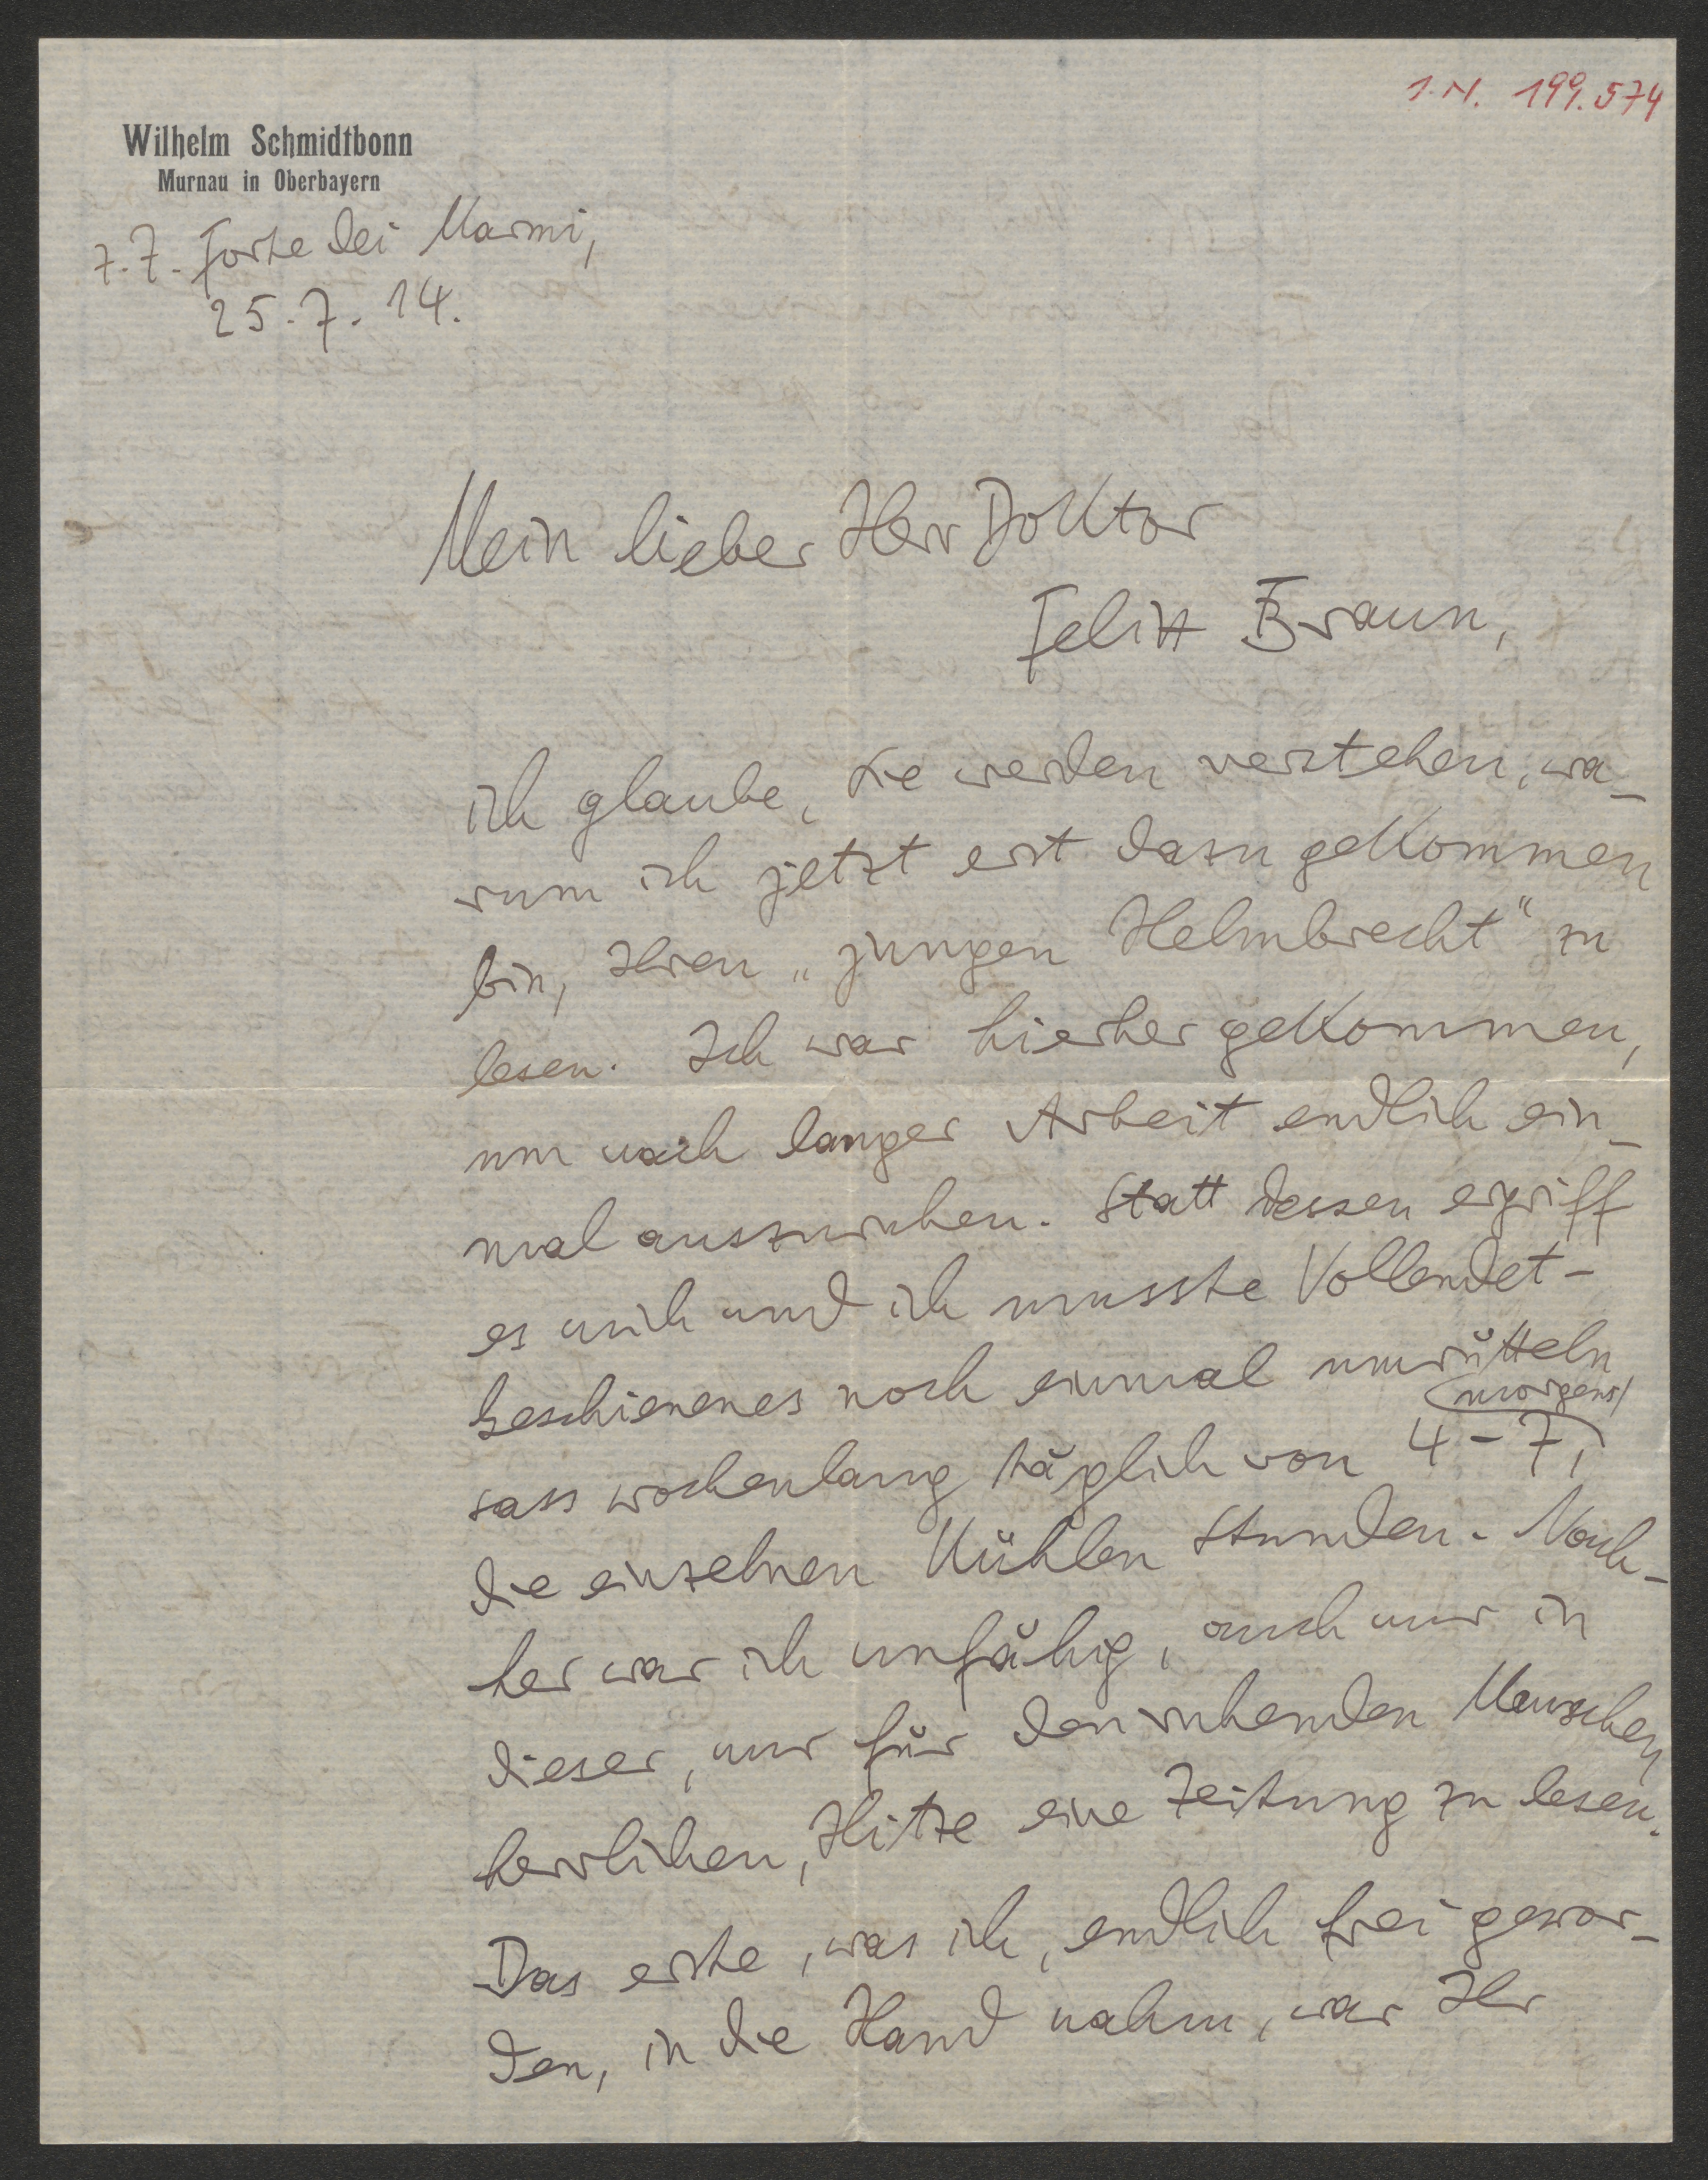 I.N. 199.574
Wilhelm Schmidtbonn
Murnau in Oberbayern
z. Z. Forte dei Marmi,
25. 7. 14.
Mein lieber Herr Doktor
Felix Braun,
ich glaube, Sie werden verstehen, wa-
rum ich jetzt erst dazu gekommen
bin, Ihren „jungen Helmbrecht" zu
lesen. Ich war hierher gekommen,
um nach langer Arbeit endlich ein-
mal auszuruhen. Statt dessen ergriff
es mich und ich musste Vollendet-
geschienenes noch einmal umrütteln
sass wochenlang täglich von 4-7, morgens,
die einzelnen kühlen Stunden. Nach-
her war ich unfähig, auch nur in
dieser, nur für den ruhenden Menschen
herrlichen, Hitze eine Zeitung zu lesen.
Das erste, was ich, endlich frei gewor-
den, in die Hand nahm, war Ihr